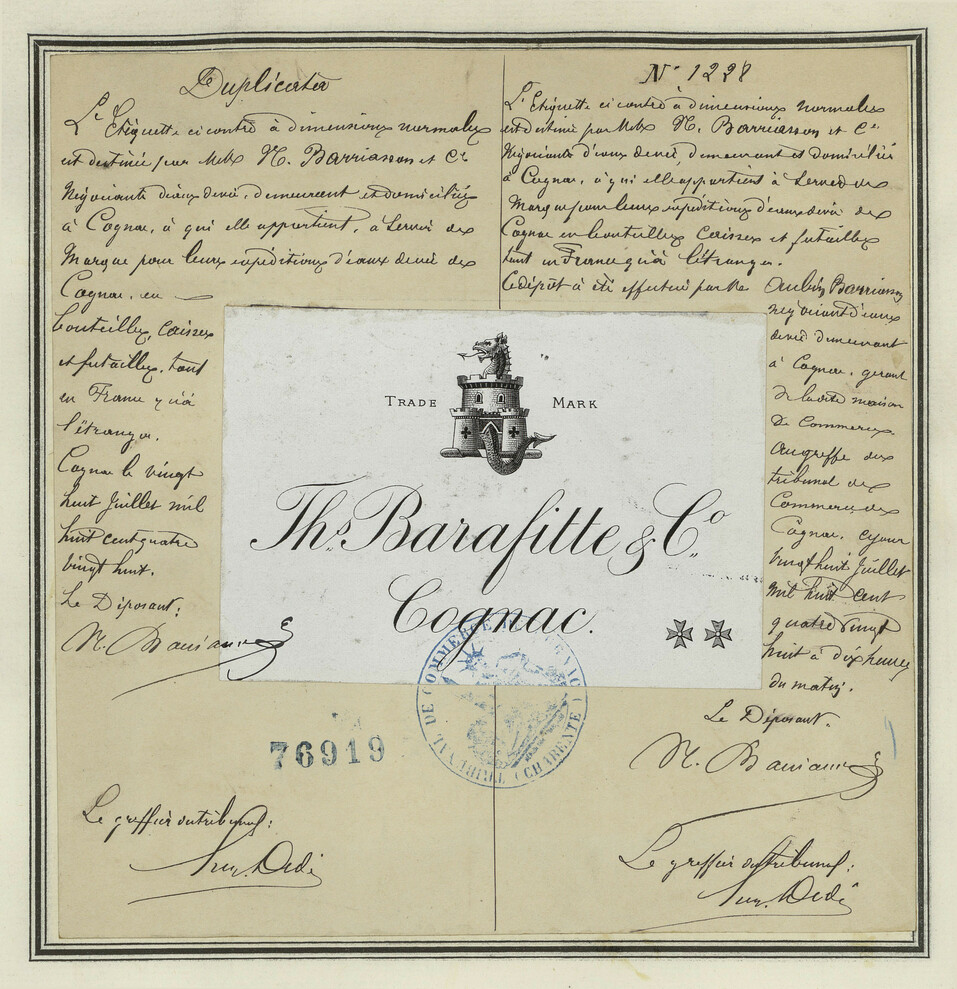 Duplicata
L'Etiquette ci contre à dimensions normales
est destinée par MM. N. Barriasson et Cie
Négociants d'eaux de vie, demeurant et domiciliés
à Cognac, à qui elle appartient, à servir de
Marque pour leurs expéditions d'eaux de vie de
Cognac, en
bouteilles, caisses
et futailles, tant
en France qu'à
l'étranger.
Cognac le vingt
huit Juillet mil
huit cent quatre
vingt huit.
Le Déposant:
N. Barriasson
76919
Le greffier du tribunal:
N° 1228
L'Etiquette ci contre à dimensions normales
est destinée par MM. N. Barriasson et Cie
Négociants d'eaux de vie, demeurant et domiciliés
à Cognac, à qui elle appartient à servir de
Marque pour leurs expéditions d'eaux de vie de
Cognac en bouteilles caisses et futailles
tant en France qu'à l'étranger.
Le dépôt a été effectué par Mr Barriasson
négociant d'eaux
de vie demeurant
à Cognac, gérant
de la dite maison
de Commerce
au greffe du
tribunal de
Commerce de
Cognac, ce jour
vingt huit Juillet
mil huit cent
quatre vingt
huit à dix heures
du matin.
Le Déposant.
N. Barriasson
Le greffier du tribunal:
TRADE MARK
Ths. Barafitte & Co.
Cognac.
TRIBUNAL DE COMMERCE DE COGNAC (CHARENTE)